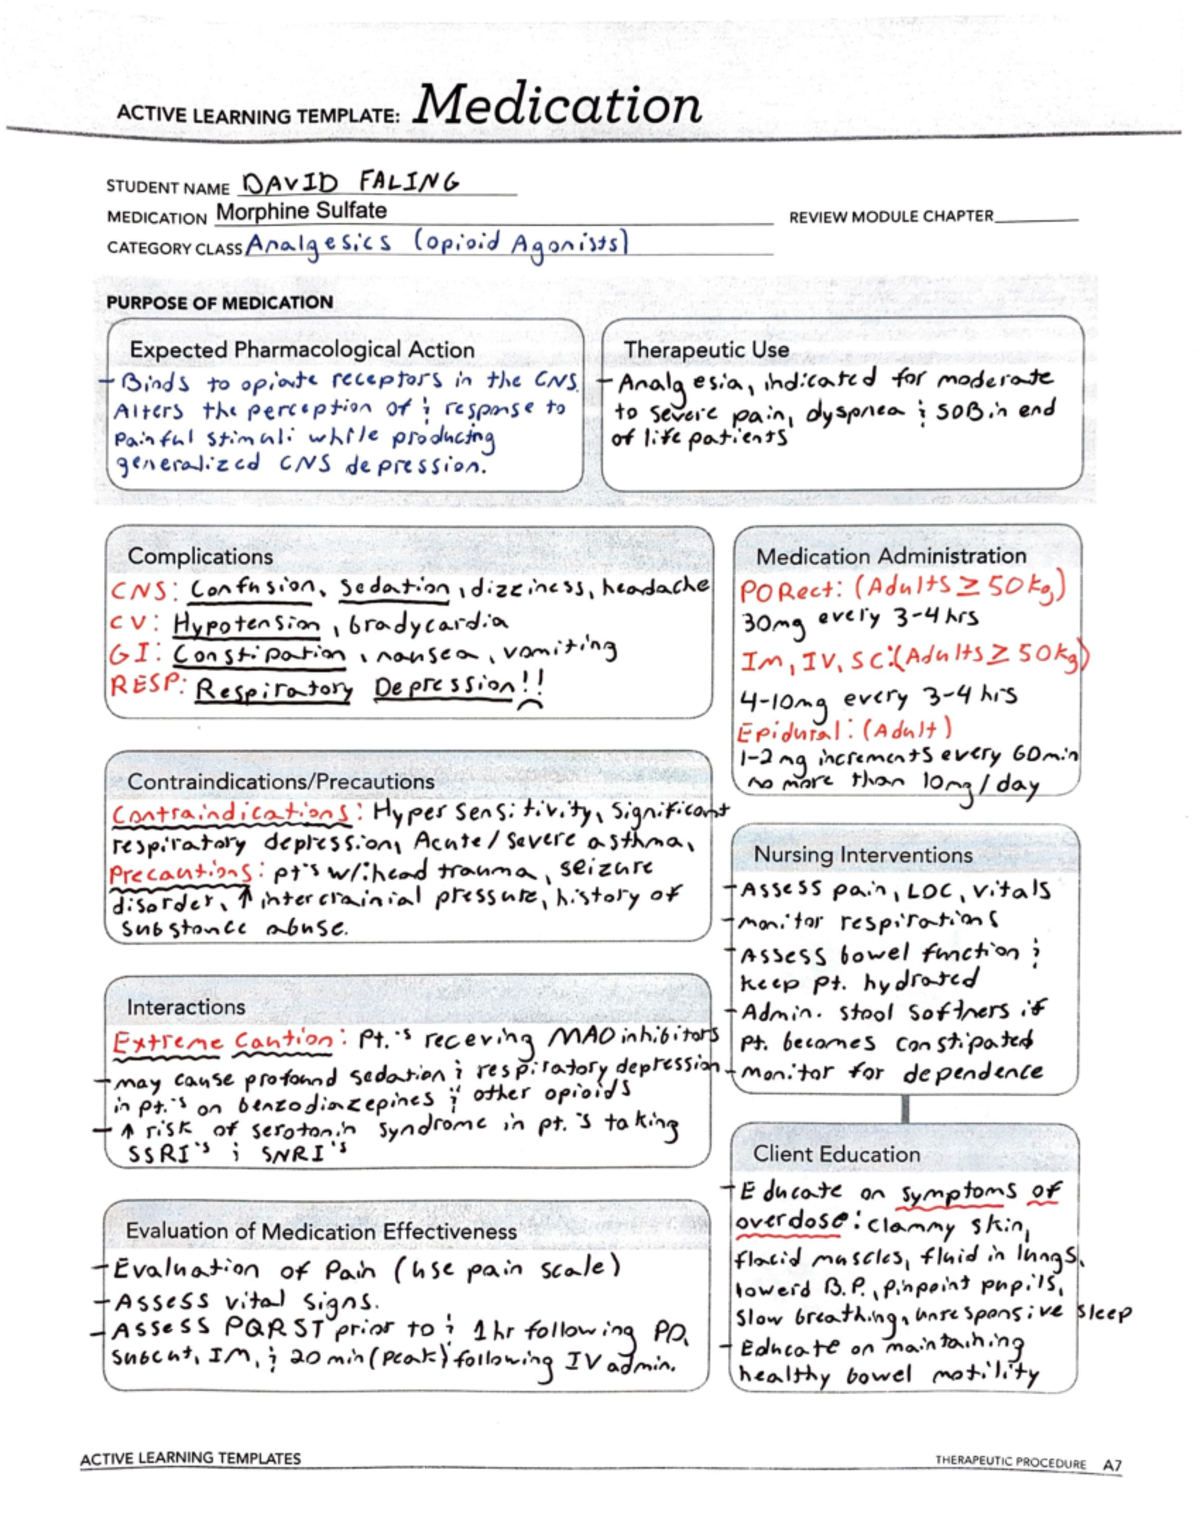 ACTIVE LEARNING TEMPLATE: Medication
STUDENT NAME DAVID FALING
MEDICATION Morphine Sulfate
REVIEW MODULE CHAPTER
CATEGORY CLASS Analgesics (Opioid Agonists)
PURPOSE OF MEDICATION
Expected Pharmacological Action
- Binds to opiate receptors in the CNS.
Alters the perception of & response to
painful stimuli while producing
generalized CNS depression.
Therapeutic Use
- Analgesia, indicated for moderate
to severe pain, dyspnea & SOB in end
of life patients
Complications
CNS: Confusion, Sedation, dizziness, headache
CV: Hypotension, bradycardia
GI: Constipation, nausea, vomiting
RESP: Respiratory Depression!!
Medication Administration
PO Rect: (Adults ≥ 50kg)
30mg every 3-4 hrs
IM, IV, SC: (Adults ≥ 50kg)
4-10mg every 3-4 hrs
Epidural: (Adult)
1-2 mg increments every 60min
no more than 10mg/day
Contraindications/Precautions
Contraindications: Hypersensitivity, Significant
respiratory depression, Acute/Severe asthma,
Precautions: pt's w/: head trauma, seizure
disorder, ↑ intercrainial pressure, history of
substance abuse.
Nursing Interventions
- Assess pain, LOC, vitals
- monitor respirations
- Assess bowel function &
keep pt. hydrated
- Admin. stool softners if
pt. becomes constipated
- monitor for dependence
Interactions
Extreme Caution: Pt.'s receving MAO inhibitors
- may cause profound sedation & respiratory depression
in pt.'s on benzodiazepines & other opioids
- ↑ risk of serotonin syndrome in pt.'s taking
SSRI's & SNRI's
Client Education
- Educate on symptoms of
overdose: clammy skin,
flacid muscles, fluid in lungs,
lowerd B.P., pinpoint pupils,
slow breathing, unresponsive sleep
- Educate on maintaining
healthy bowel motility
Evaluation of Medication Effectiveness
- Evaluation of Pain (use pain scale)
- Assess vital signs.
- Assess PQRST prior to & 1hr following PO,
subcut, IM, & 20 min (peak) following IV admin.
ACTIVE LEARNING TEMPLATES
THERAPEUTIC PROCEDURE A7